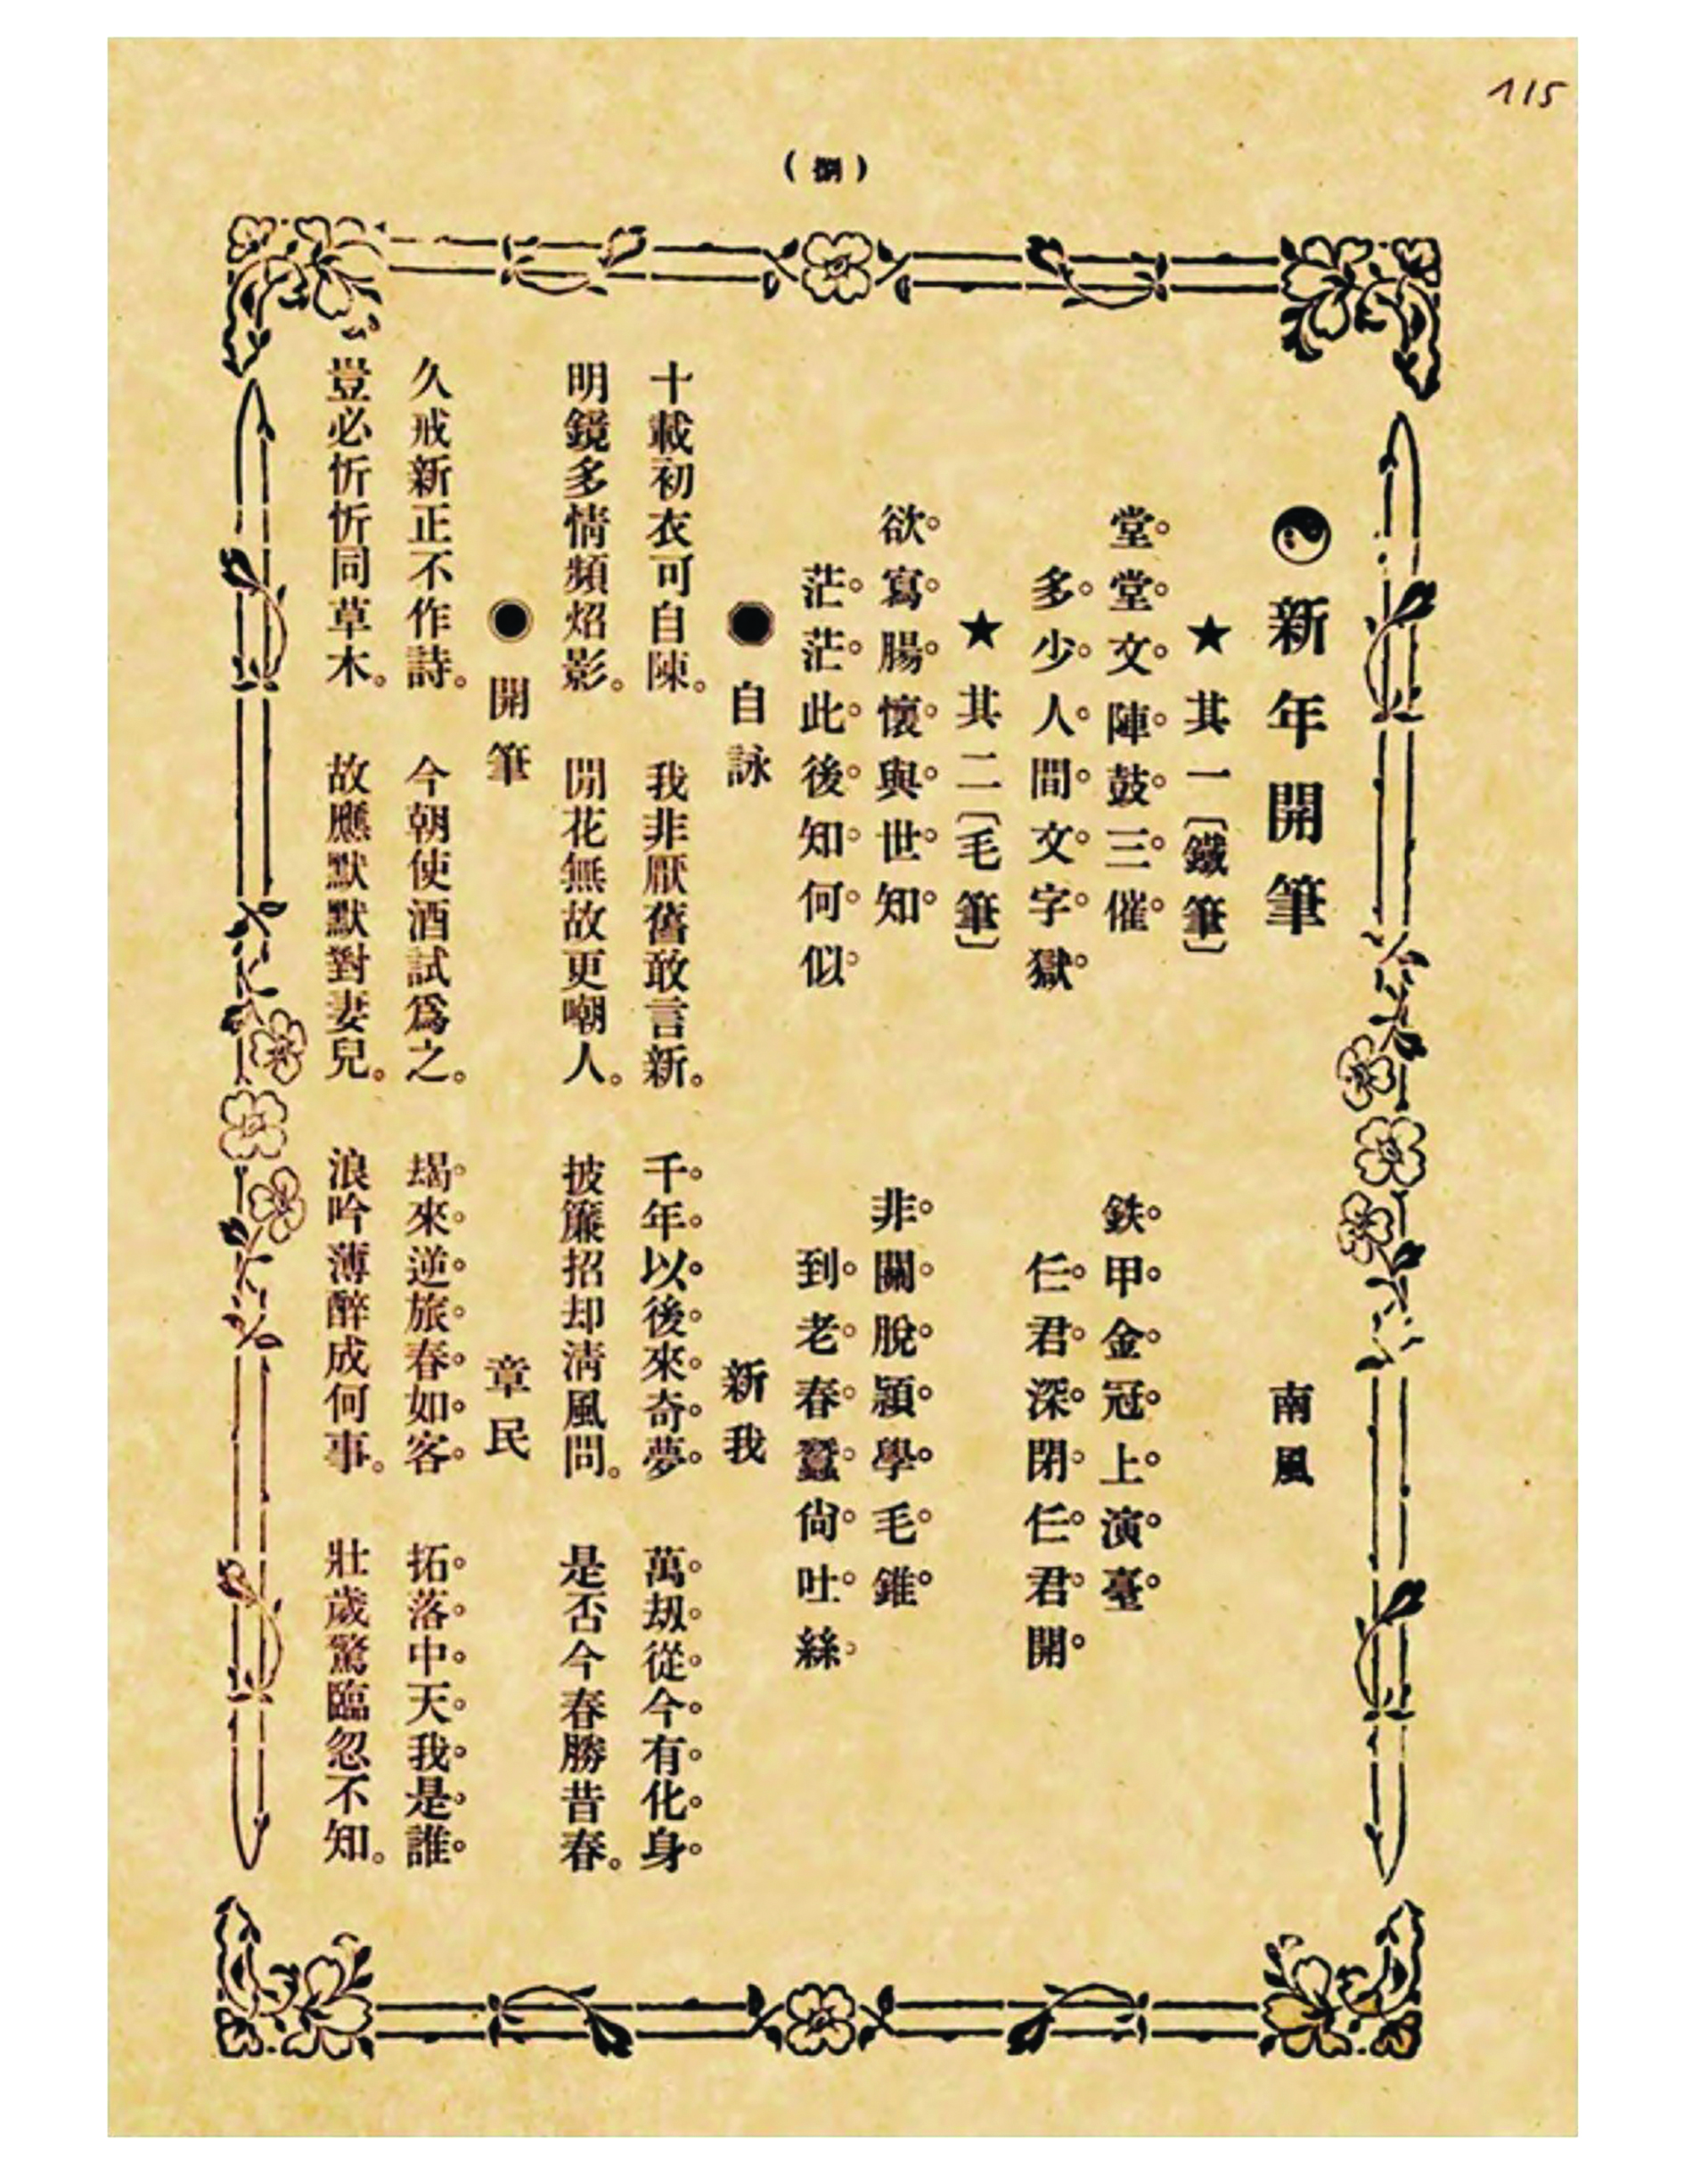 115
（捌）
新年開筆 南風
★其一〔鐵筆〕
堂。堂。文。陣。鼓。三。催。 鉄。甲。金。冠。上。演。臺。
多。少。人。間。文。字。獄。 仨。君。深。閉。仨。君。開。
★其二〔毛筆〕
欲。寫。腸。懷。與。世。知。 非。關。脫。穎。學。毛。錐。
茫。茫。此。後。知。何。似。 到。老。春。蠶。尙。吐。絲。
●自詠 新我
十載初衣可自陳。 我非厭舊敢言新。 千。年。以。後。來。奇。夢。 萬。刼。從。今。有。化。身。
明鏡多情頻炤影。 閒花無故更嘲人。 披簾招却淸風問。 是否今春勝昔春。
●開筆 章民
久戒新正不作詩。 今朝使酒試爲之。 朅。來。逆。旅。春。如。客。 拓。落。中。天。我。是。誰。
豈必忻忻同草木。 故應默默對妻兒。 浪吟薄醉成何事。 壯歲驚臨忽不知。